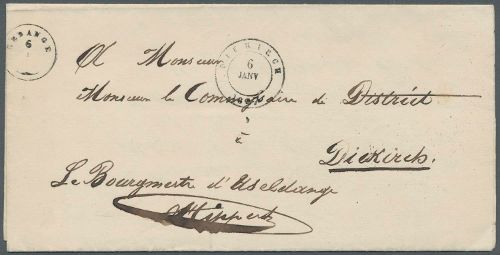 REDANGE
6
DIEKIRCH
6
JANV
A Monsieur
Monsieur le Commissaire de District
Diekirch.
Le Bourgmestre d'Useldange